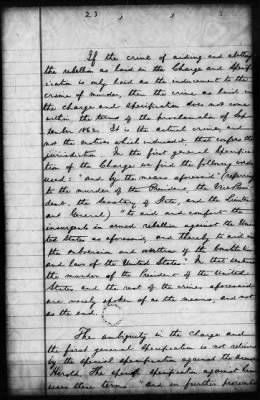 23
If the crime of aiding and abetting
the rebellion as laid in the Charge and Specif-
ication is only laid as the inducement to the
crime of murder, then the crime as laid in
the charge and specification does not come
within the terms of the proclamation of Sep-
tember 1862. It is the actual crime, and
not the motives which induced it that confers the
jurisdiction. In the first general Specifica-
tion of the Charge, we find the following words
used: "and by the means aforesaid" (referring
to the murder of the President, the Vice Presi-
dent, the Secretary of State, and the Lieuten-
ant General) "to aid and comfort the
insurgents in armed rebellion against the Uni-
ted States as aforesaid, and thereby to aid in
the subversion and overthrow of the Constitution
and laws of the United States." In that sentence
the murder of the President of the United
States and the rest of the crimes aforesaid
are merely spoken of as the means, and not
as the end.
The ambiguity in the Charge and
the first general Specification is not relieved
by the special specification against the accused
Herold. The specific specification against him
uses these terms "and in further prosecution